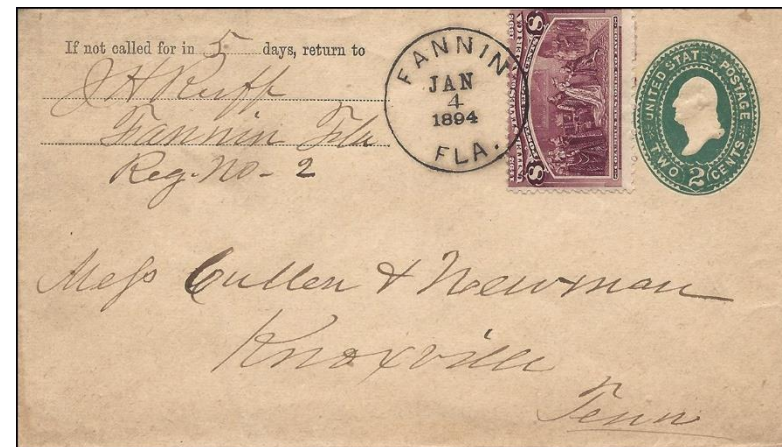 If not called for in 5 days, return to
J H Ruff
Fannin Fla
Reg. No - 2
FANNIN
JAN
4
1894
FLA.
8
8
UNITED STATES POSTAGE
TWO 2 CENTS
Mess Cullen & Newman
Knoxville
Tenn